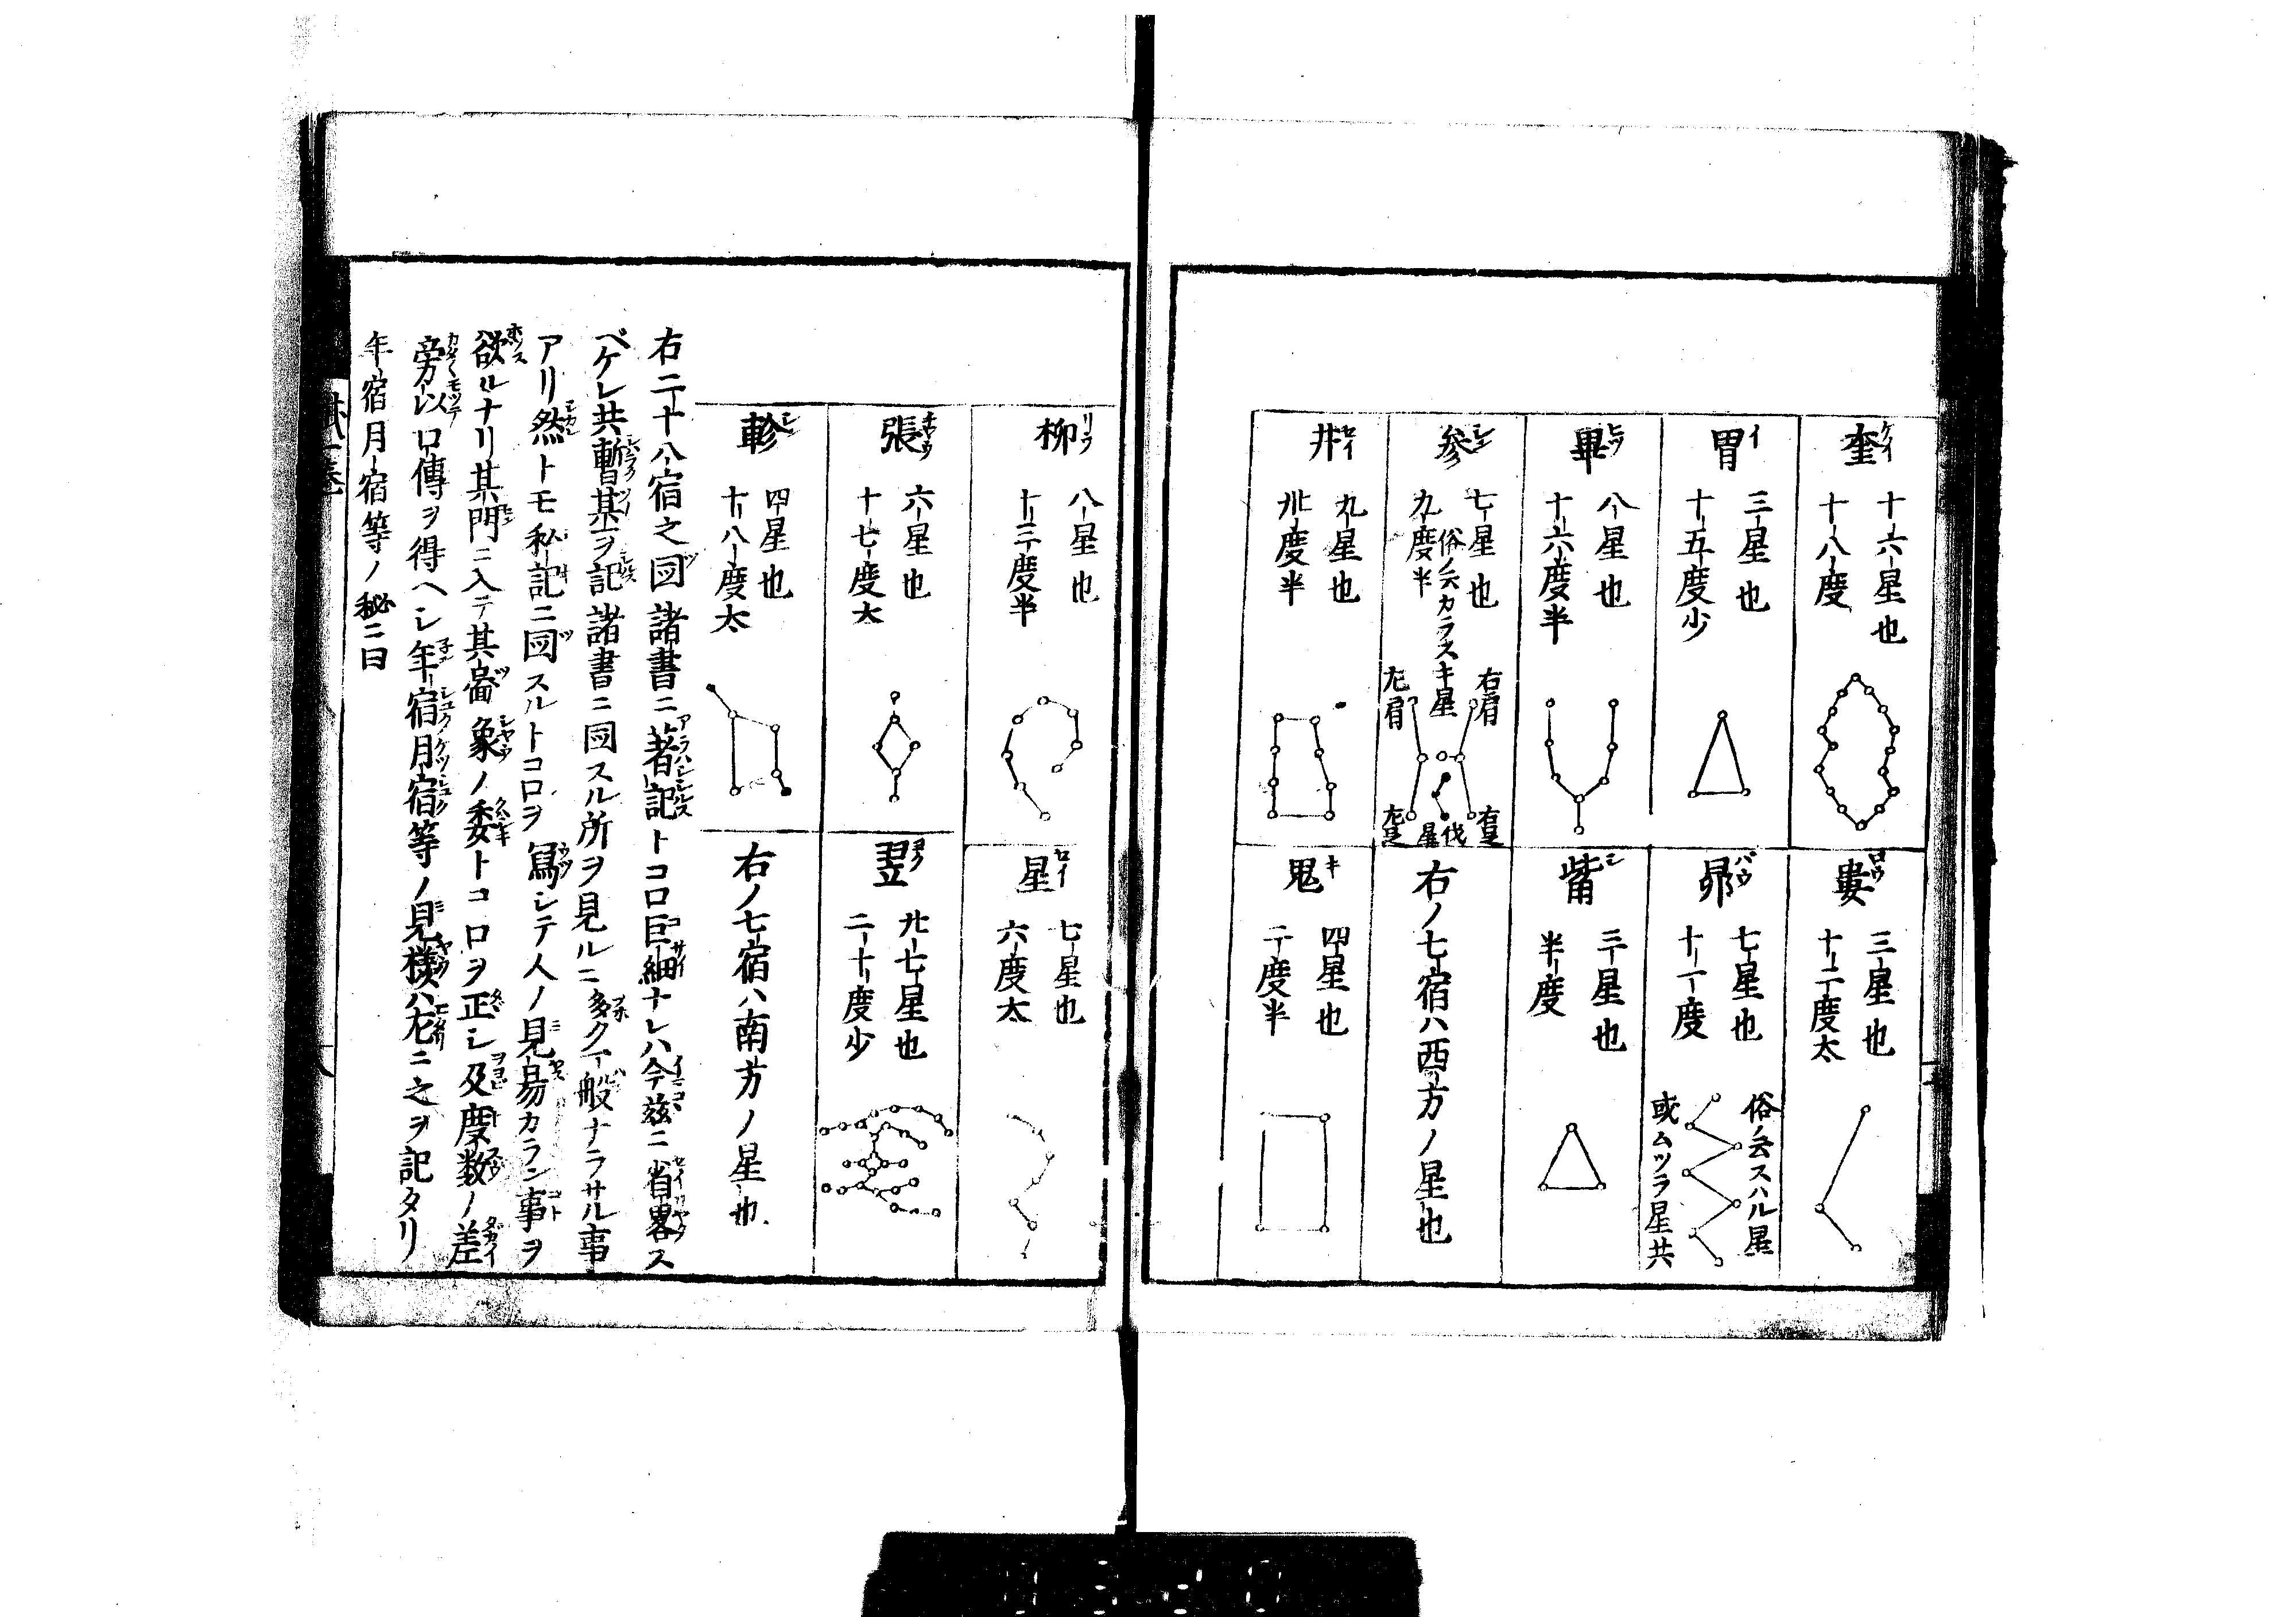 奎 ケイ
十六星也
十八度
婁 ロウ
三星也
十二度太
胃 イ
三星也
十五度少
昴 バウ
七星也
十一度
俗ノ云スハル星
或ムツラ星共
畢 ヒツ
八星也
十六度半
觜 シ
三星也
半度
参 シン
七星也
俗ノ云カラスキ星
九度半
右肩
左肩
右足
伐星
左足
右ノ七宿ハ西方ノ星也
井 セイ
九星也
卅度半
鬼 キ
四星也
二度半
柳 リウ
八星也
十三度半
星 セイ
七星也
六度太
張 チヤウ
六星也
十七度太
翌 ヨク
廿七星也
二十度少
軫 シン
四星也
十八度太
右ノ七宿ハ南方ノ星也
右二十八宿之図諸書ニ著記トコロ巨細ナレハ今茲ニ省畧ス
ベケレ共暫其ヲ記諸書ニ図スル所ヲ見ルニ多ク一般ナラサル事
アリ然トモ私記ニ図スルトコロヲ寫シテ人ノ見昜カラン事ヲ
欲ルナリ其門ニ入テ其啚象ノ委トコロヲ正シ及度数ノ差
旁以口傳ヲ得ヘシ年宿月宿等ノ見様ハ左ニ之ヲ記タリ
年宿月宿等ノ秘ニ曰